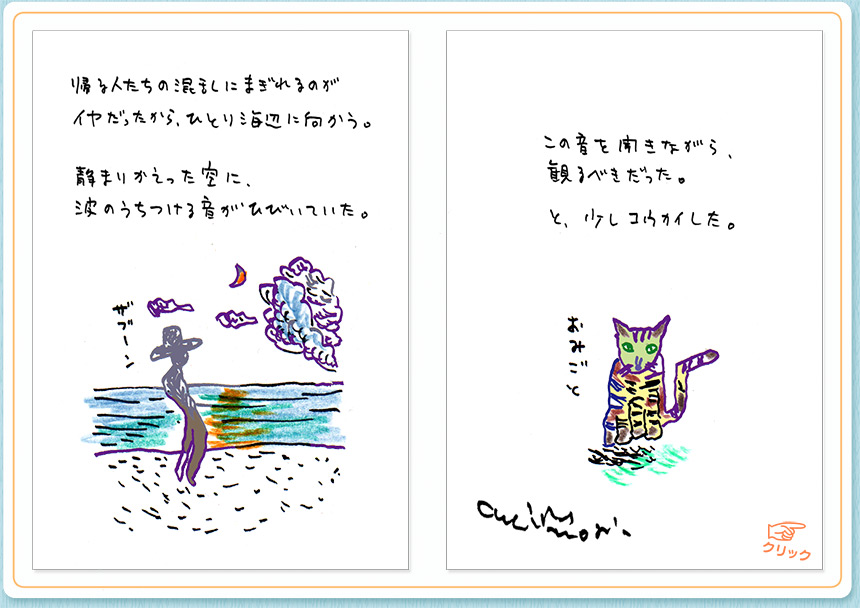 帰る人たちの混乱にまぎれるのが
イヤだったから、ひとり海辺に向かう。
静まりかえった空に、
波のうちつける音がひびいていた。
ザブーン
この音を聞きながら、
観るべきだった。
と、少しコウカイした。
おみごと
クリック